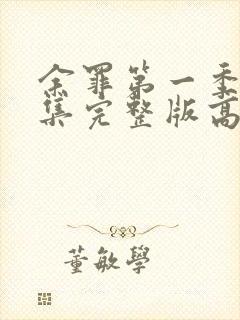 余罪第一季
集完整版高
董敏學